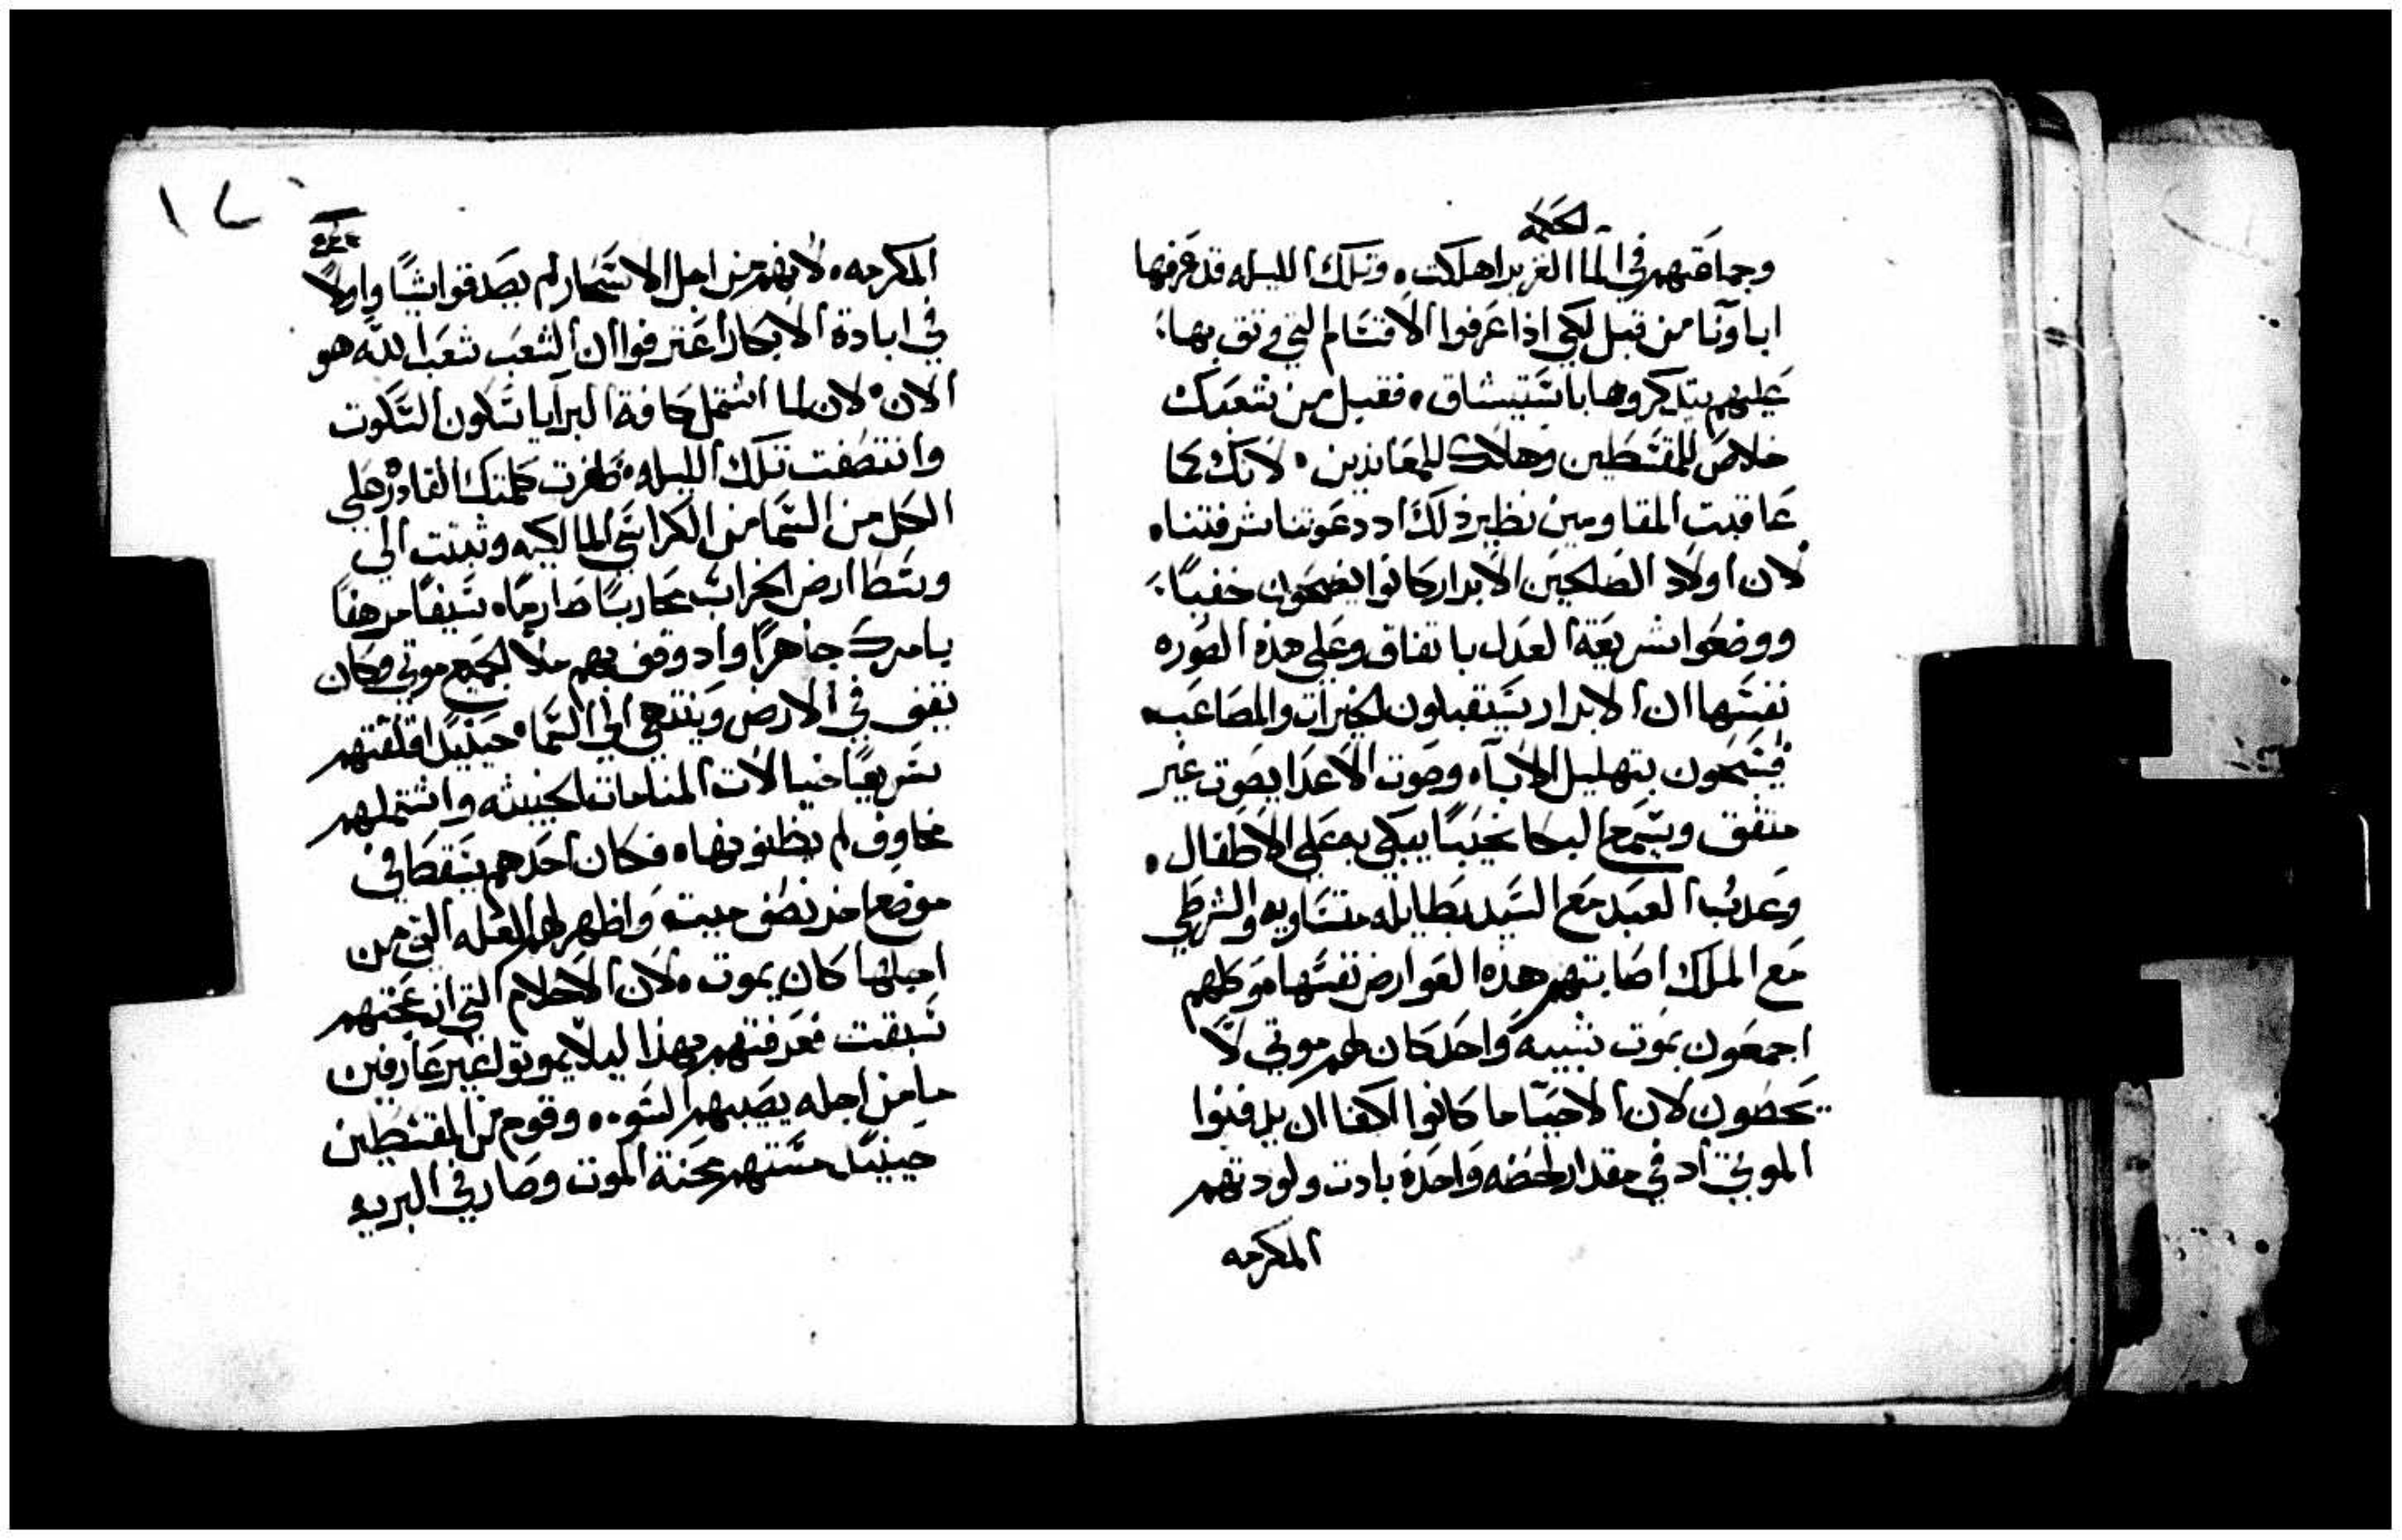 الحكمه
وجماعتهم في الما الغزير اهلكت. وتلك الليله قد عرفها
اباونا من قبل لكي اذا عرفوا الاقسام التي وثق بها:
عليهم يتذكروها باستيتاق. فقبل من شعبك
خلاص للمقسطين وهلاك للمعاندين. لانك كما
عاقبت المقاومين نظير ذلك اد دعوتنا شرفتنا.
لان اولاد الصالحين الابرار كانوا يضحون خفيًا:
ووضعوا شريعة العدل باتفاق وعلى هذه الصوره
نفسها ان الابرار يستقبلون الخيرات والمصاعب.
فيسبحون بتهليل الاباء. وصوت الاعدا بصوت غير
متفق ويسمع البكا نحيبًا يبكي به على الاطفال.
وعذب العبد مع السيد بطايله متساويه والشرطي
مع الملك اصابتهم هذه العوارض نفسها. وكلهم
اجمعون بموت شبيه واحد كان لهم موتي لا
يحصون لان الاحيا ما كانوا اكفا ان يدفنوا
الموتي اد في مقدار لحضه واحده بادت ولودتهم
المكرمه
المكرمه. لانهم من اجل الاسحار لم يصدقوا شيًا واولاً
في ابادة الابكار اعترفوا ان الشعب شعب الله هو
الان. لان لما اشتمل كافة البرايا سكون السكوت
وانتصفت تلك الليله. طفرت كلمتك القادره على
الكل من السما من الكراسي المالكيه وثبتت الي
وسط ارض الخراب محاربًا صارمًا. سيفًا مرهفًا
بامرك جاهرًا واد وقف بهم ملا الجميع موتي وكان
يقف في الارض وينتهي الي السما. حينيد اقلقتهم
سريعًا خيالات المنامات الخبيثه واشتملهم
مخاوف لم يظنو بها. فكان احدهم يسقط في
موضع اخر نصف ميته واظهر لهم العله التي من
اجلها كان يموت. لان الاحلام التي ازعجتهم
سبقت فعرفتهم بهذا ليلا يموتوا غير عارفين
ما من اجله يصيبهم السوء. وقوم من المقسطين
حينيد مستهم محنة الموت وصار في البريه